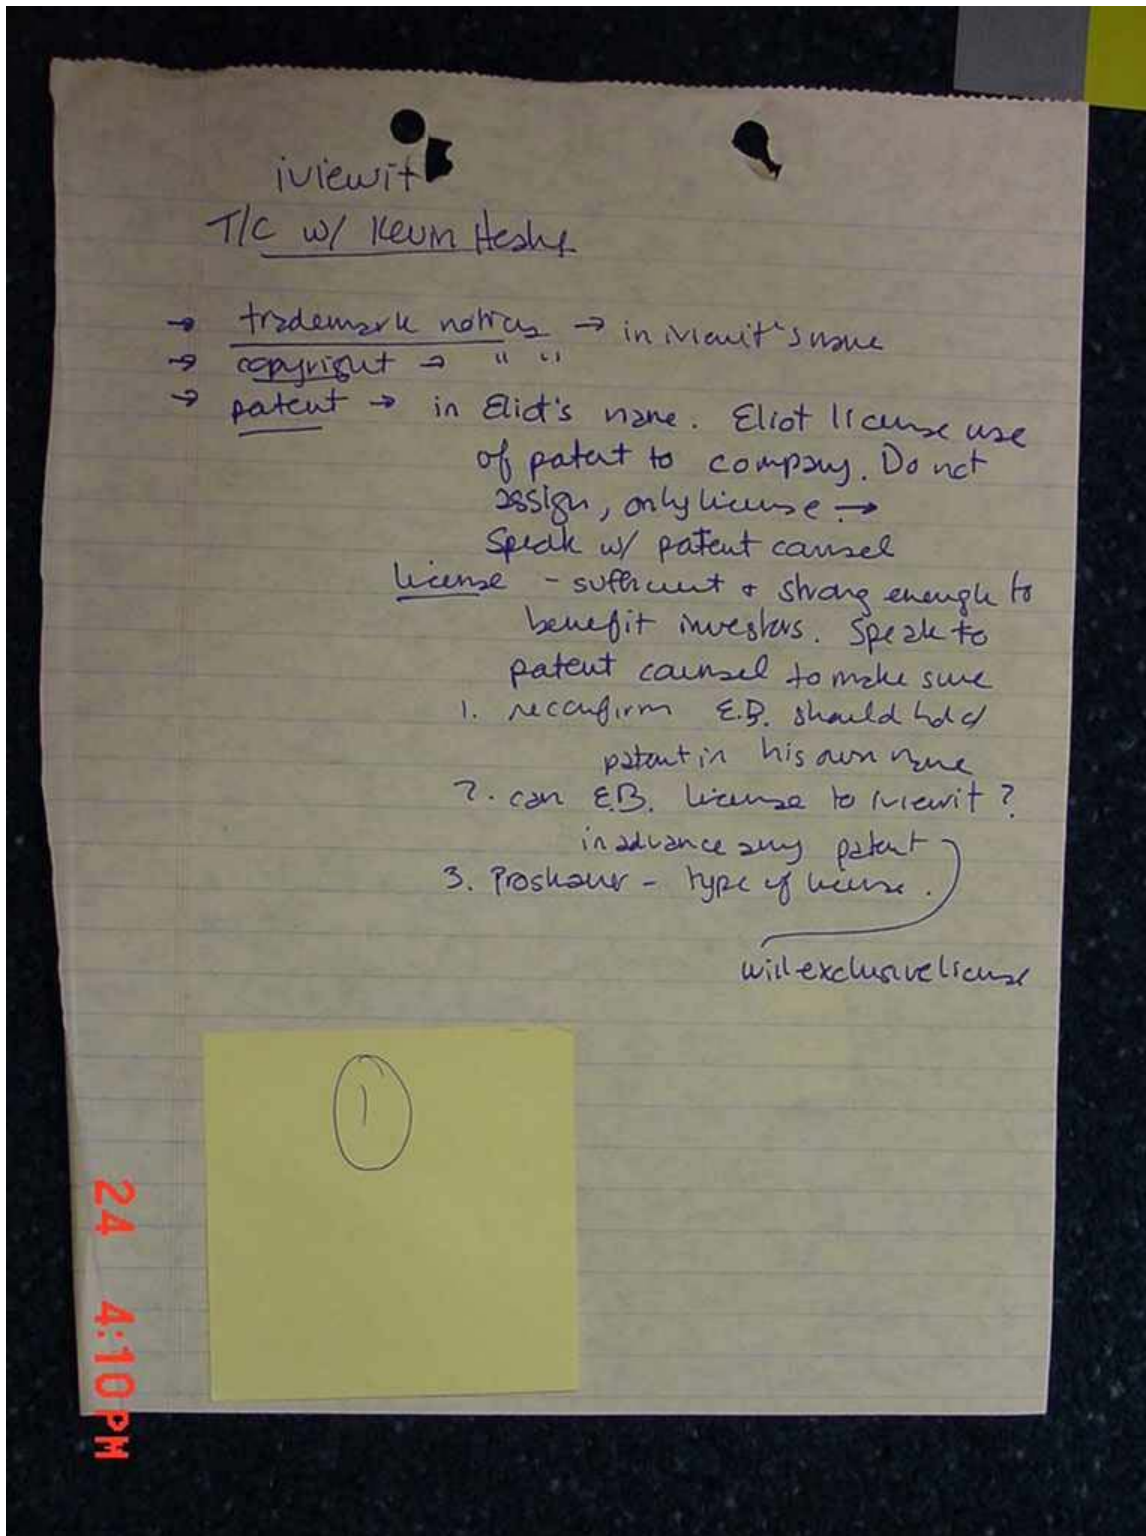 iviewit
T/C w/ Kevin
→ trademark notices → in iviewit's name
→ copyright → " "
→ patent → in Eliot's name. Eliot license use
of patent to company. Do not
assign, only license →
Speak w/ patent counsel
license - sufficient & strong enough to
benefit investors. Speak to
patent counsel to make sure
1. reconfirm E.B. should hold
patent in his own name
2. can E.B. license to iviewit?
in advance any patent
3. Proskauer - type of license.
will exclusive license
1
24 4:10PM